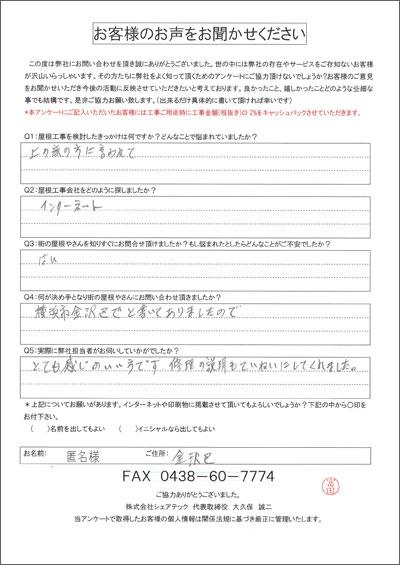 お客様のお声をお聞かせください
この度は弊社にお問い合わせを頂き誠にありがとうございました。世の中には弊社の存在やサービスをご存知ないお客様
が沢山いらっしゃいます。その方たちに弊社をよく知って頂くためのアンケートにご協力頂けないでしょうか?お客様のご意見
をお聞かせいただき今後の活動に反映させていただきたいと考えております。良かったこと、嬉しかったことどのような些細な
事でも結構です。是非ご協力お願い致します。(出来るだけ具体的に書いて頂ければ幸いです)
*本アンケートにご記入いただいたお客様には工事ご用命時に工事金額(税抜き)の2%をキャッシュバックさせていただきます。
Q1:屋根工事を検討したきっかけは何ですか?どんなことで悩まれていましたか?
上の家の方に言われて
Q2:屋根工事会社をどのように探しましたか?
インターネット
Q3:街の屋根やさんを知りすぐにお問合せ頂けましたか?もし悩まれたとしたらどんなことがご不安でしたか?
はい
Q4:何が決め手となり街の屋根やさんにお問い合わせ頂きましたか?
横浜市金沢区でと書いてありましたので
Q5:実際に弊社担当者がお伺いしていかがでしたか?
とても感じのいい方です 修理の説明もていねいにしてくれました。
*上記についてお願いがあります。インターネットや印刷物に掲載させて頂いてもよろしいでしょうか?下記の中から〇印を
お付下さい。
( )名前を出してもよい ( )イニシャルなら出してもよい
お名前: 匿名様 ご住所: 金沢区
FAX 0438-60-7774
ご協力ありがとうございました。
株式会社シェアテック 代表取締役 大久保 誠二
当アンケートで取得したお客様の個人情報は関係法規に基づき厳正に管理いたします。